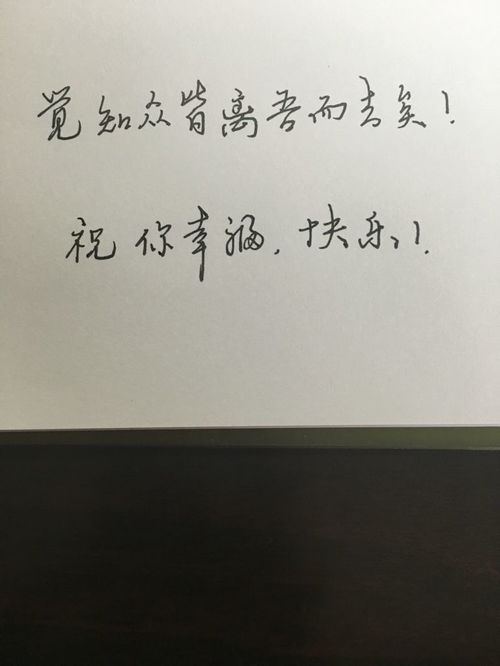 觉知众皆离吾而去矣!
祝你幸福,快乐!!